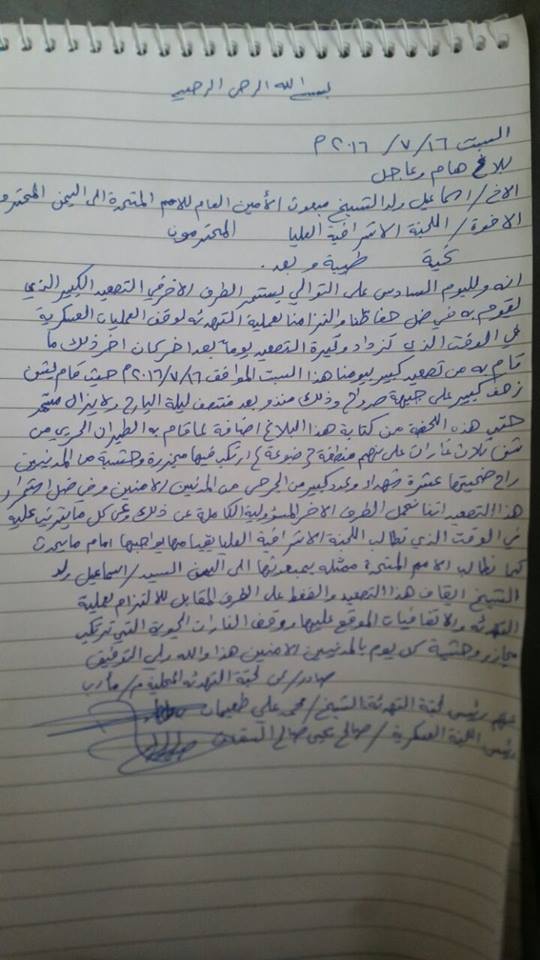 بسم الله الرحمن الرحيم
السبت ١٦ / ٧ / ٢٠١٦ م
بلاغ هام وعاجل
الاخ / اسماعيل ولد الشيخ مبعوث الأمين العام للامم المتحدة الى اليمن المحترم
الاخوة / اللجنة الاشرافية العليا المحترمون
تحية طيبة وبعد.
انه ولليوم السادس على التوالي يستمر الطرف الاخر في التصعيد الكبير الذي
يقوم به في ضل حفاظنا والتزامنا بعملية التهدئه لوقف العمليات العسكرية
في الوقت الذي تزداد وتيرة التصعيد يوماً بعد اخر كان اخر ذلك ما
قام به من تصعيد كبير يومنا هذا السبت الموافق ١٦/٧/٢٠١٦م حيث قام بشن
زحف كبير على جبهة صرواح وذلك منذو بعد منتصف ليلة البارح ولايزال مستمر
حتى هذه اللحظة من كتابة هذا البلاغ اضافة لما قام به الطيران الحربي من
شن ثلاث غارات على نهم منطقة ارتكب فيها مجزرة وحشية بحق المدنيين
راح ضحيتها عشرة شهداء وعدد كبير من الجرحى من المدنيين الامنين وفي ضل استمرار
هذا التصعيد اننا نحمل الطرف الاخر المسؤولية الكاملة عن ذلك وعن كل ما يترتب عليه
في الوقت الذي نطالب اللجنة الاشرافية العليا القيام بواجبها امام ما يحدث
كما نطالب الامم المتحدة ممثله بمبعوثها الى اليمن السيد / اسماعيل ولد
الشيخ ايقاف هذا التصعيد والضغط على الطرف المقابل للالتزام بعملية
التهدئه والاتفاقيات الموقع عليها ووقف الغارات الجوية التي ترتكب
مجازر وحشية كل يوم بالمدنيين الامنين هذا والله ولي التوفيق
صادر / من لجنة التهدئه المحلية م / مارب
عنهم رئيس لجنة التهدئة الشيخ / محمد علي طعيمان
رئيس اللجنة العسكرية / صالح يحيى صالح